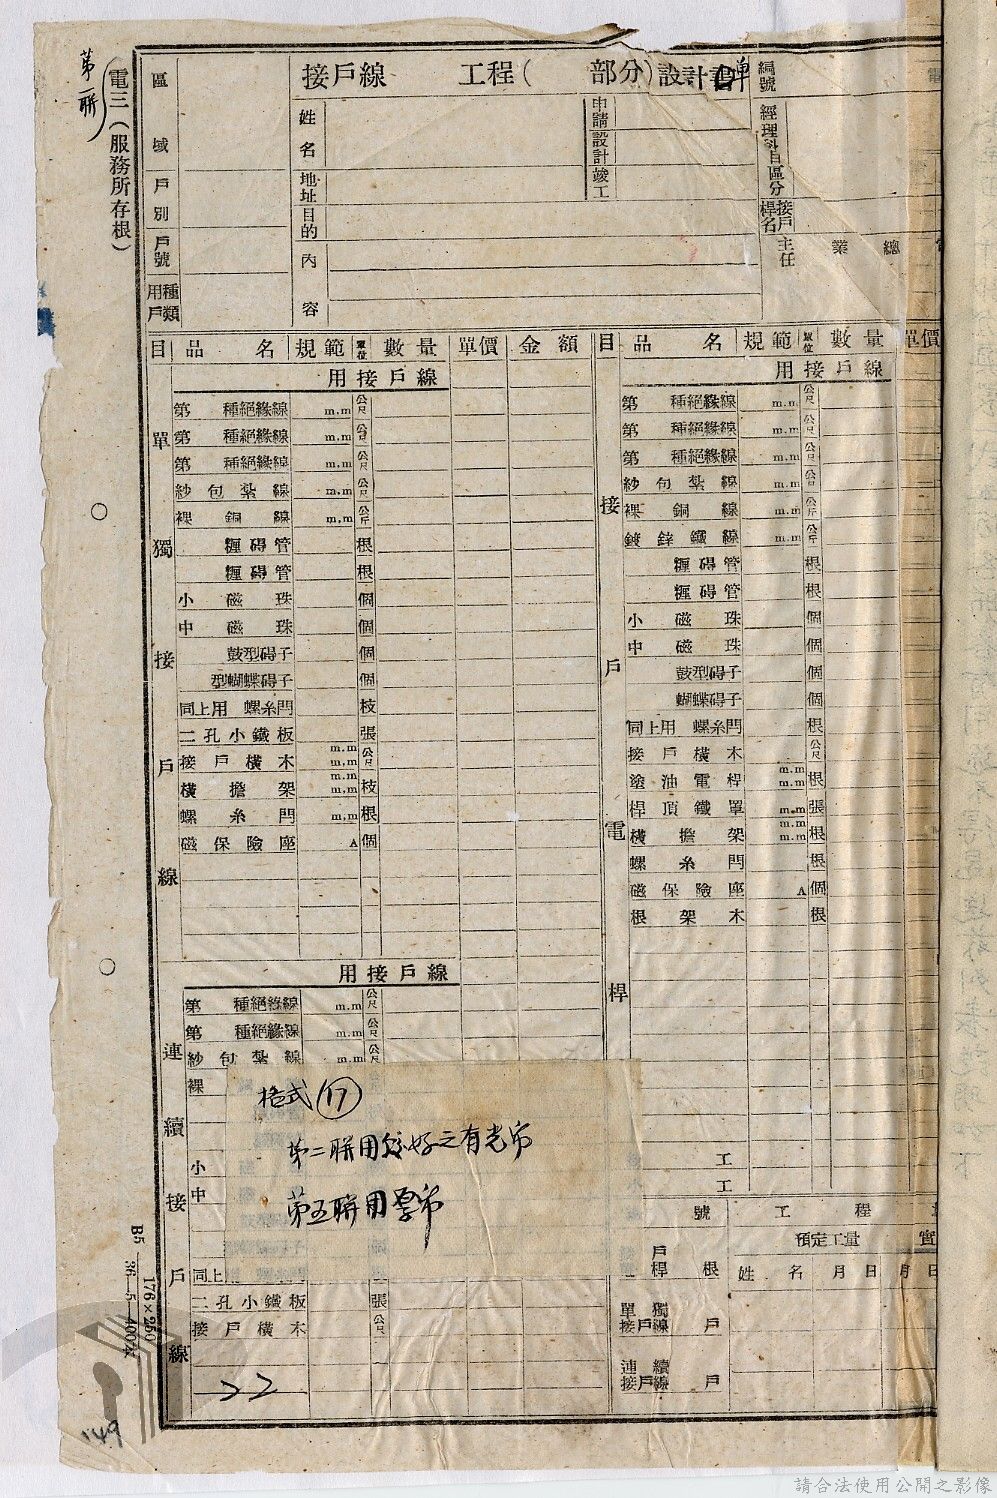 第一聯
電三(服務所存根)
接戶線 工程( 部分)設計單
編號
區域
姓名
申請
設計
竣工
經理科目區分
戶別
地址
目的
接戶桿名
戶號
內容
主任
業 總
用戶種類
目 品名 規範 單位 數量 單價 金額 目 品名 規範 單位 數量 單價
單獨接戶線
用接戶線
第 種絕緣線 m.m 公尺
第 種絕緣線 m.m 公尺
第 種絕緣線 m.m 公尺
紗包紮線 m.m 公尺
裸銅線 m.m 公斤
碍管 根
碍管 根
小磁珠 個
中磁珠 個
鼓型碍子 個
型蝴蝶碍子 個
同上用 螺糸閂 枝
二孔小鐵板 張
接戶橫木 m.m m.m 公尺
橫擔架 m.m m.m 枝
螺糸閂 m.m 根
磁保險座 A 個
接戶電桿
用接戶線
第 種絕緣線 m.m 公尺
第 種絕緣線 m.m 公尺
第 種絕緣線 m.m 公尺
紗包紮線 m.m 公尺
裸銅線 m.m 公斤
鍍鋅鐵線 m.m 公斤
碍管 根
碍管 根
小磁珠 個
中磁珠 個
鼓型碍子 個
蝴蝶碍子 個
同上用 螺糸閂 根
接戶橫木 公尺
塗油電桿 m.m m.m 根
桿頂鐵罩 m.m 張
橫擔架 m.m m.m 根
螺糸閂 根
磁保險座 A 個
根架木 根
工
工
連續接戶線
用接戶線
第 種絕緣線 m.m 公尺
第 種絕緣線 m.m 公尺
紗包紮線 m.m 公尺
裸
小
中
同上
二孔小鐵板 張
接戶橫木 公尺
格式 17
第二聯用較好之有光帋
第五聯用厚帋
號 工程
預定工量 實
戶桿 根 姓名 月日 月日
單獨接戶線 戶
連續接戶線 戶
B5 176×250
36—5—400本
22
149
請合法使用公開之影像